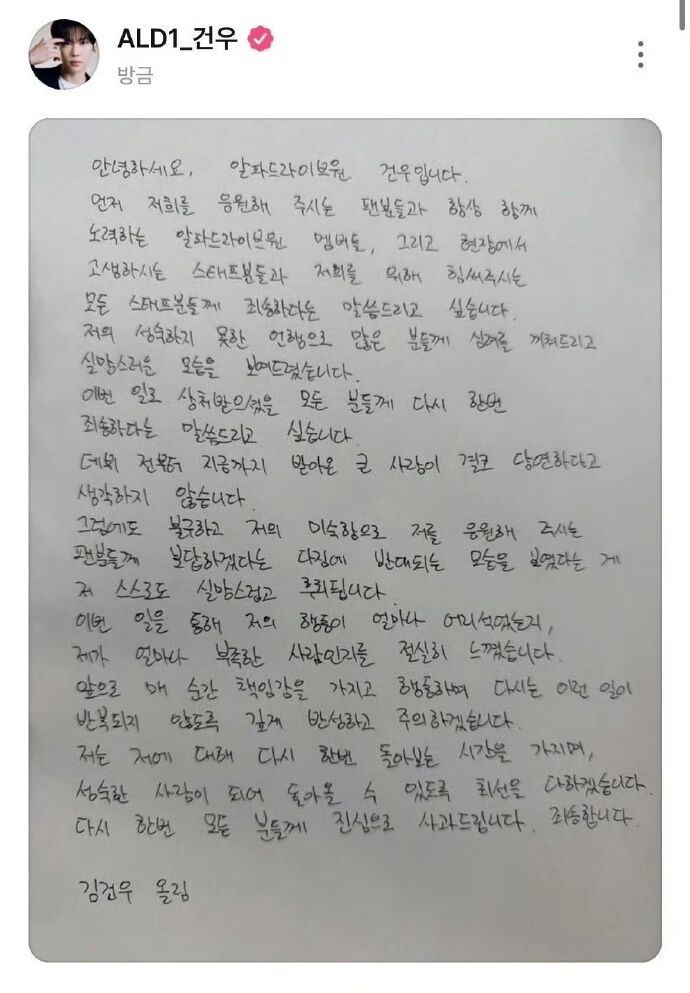 ALD1_건우
방금
안녕하세요, 알파드라이브원 건우입니다.
먼저 저희를 응원해 주시는 팬분들과 항상 함께
노력하는 알파드라이브원 멤버들, 그리고 현장에서
고생하시는 스태프분들과 저희를 위해 힘써주시는
모든 스태프분들께 죄송하다는 말씀드리고 싶습니다.
저의 성숙하지 못한 언행으로 많은 분들께 심려를 끼쳐드리고
실망스러운 모습을 보여드렸습니다.
이번 일로 상처받으셨을 모든 분들께 다시 한번
죄송하다는 말씀드리고 싶습니다.
데뷔 전부터 지금까지 받아온 큰 사랑이 결코 당연하다고
생각하지 않습니다.
그럼에도 불구하고 저의 미숙함으로 저를 응원해 주시는
팬분들께 보답하겠다는 다짐에 반대되는 모습을 보였다는 게
저 스스로도 실망스럽고 후회됩니다.
이번 일을 통해 저의 행동이 얼마나 어리석었는지,
제가 얼마나 부족한 사람인지를 절실히 느꼈습니다.
앞으로 매 순간 책임감을 가지고 행동하며 다시는 이런 일이
반복되지 않도록 깊게 반성하고 주의하겠습니다.
저는 저에 대해 다시 한번 돌아보는 시간을 가지며,
성숙한 사람이 되어 돌아올 수 있도록 최선을 다하겠습니다.
다시 한번 모든 분들께 진심으로 사과드립니다. 죄송합니다.
김건우 올림